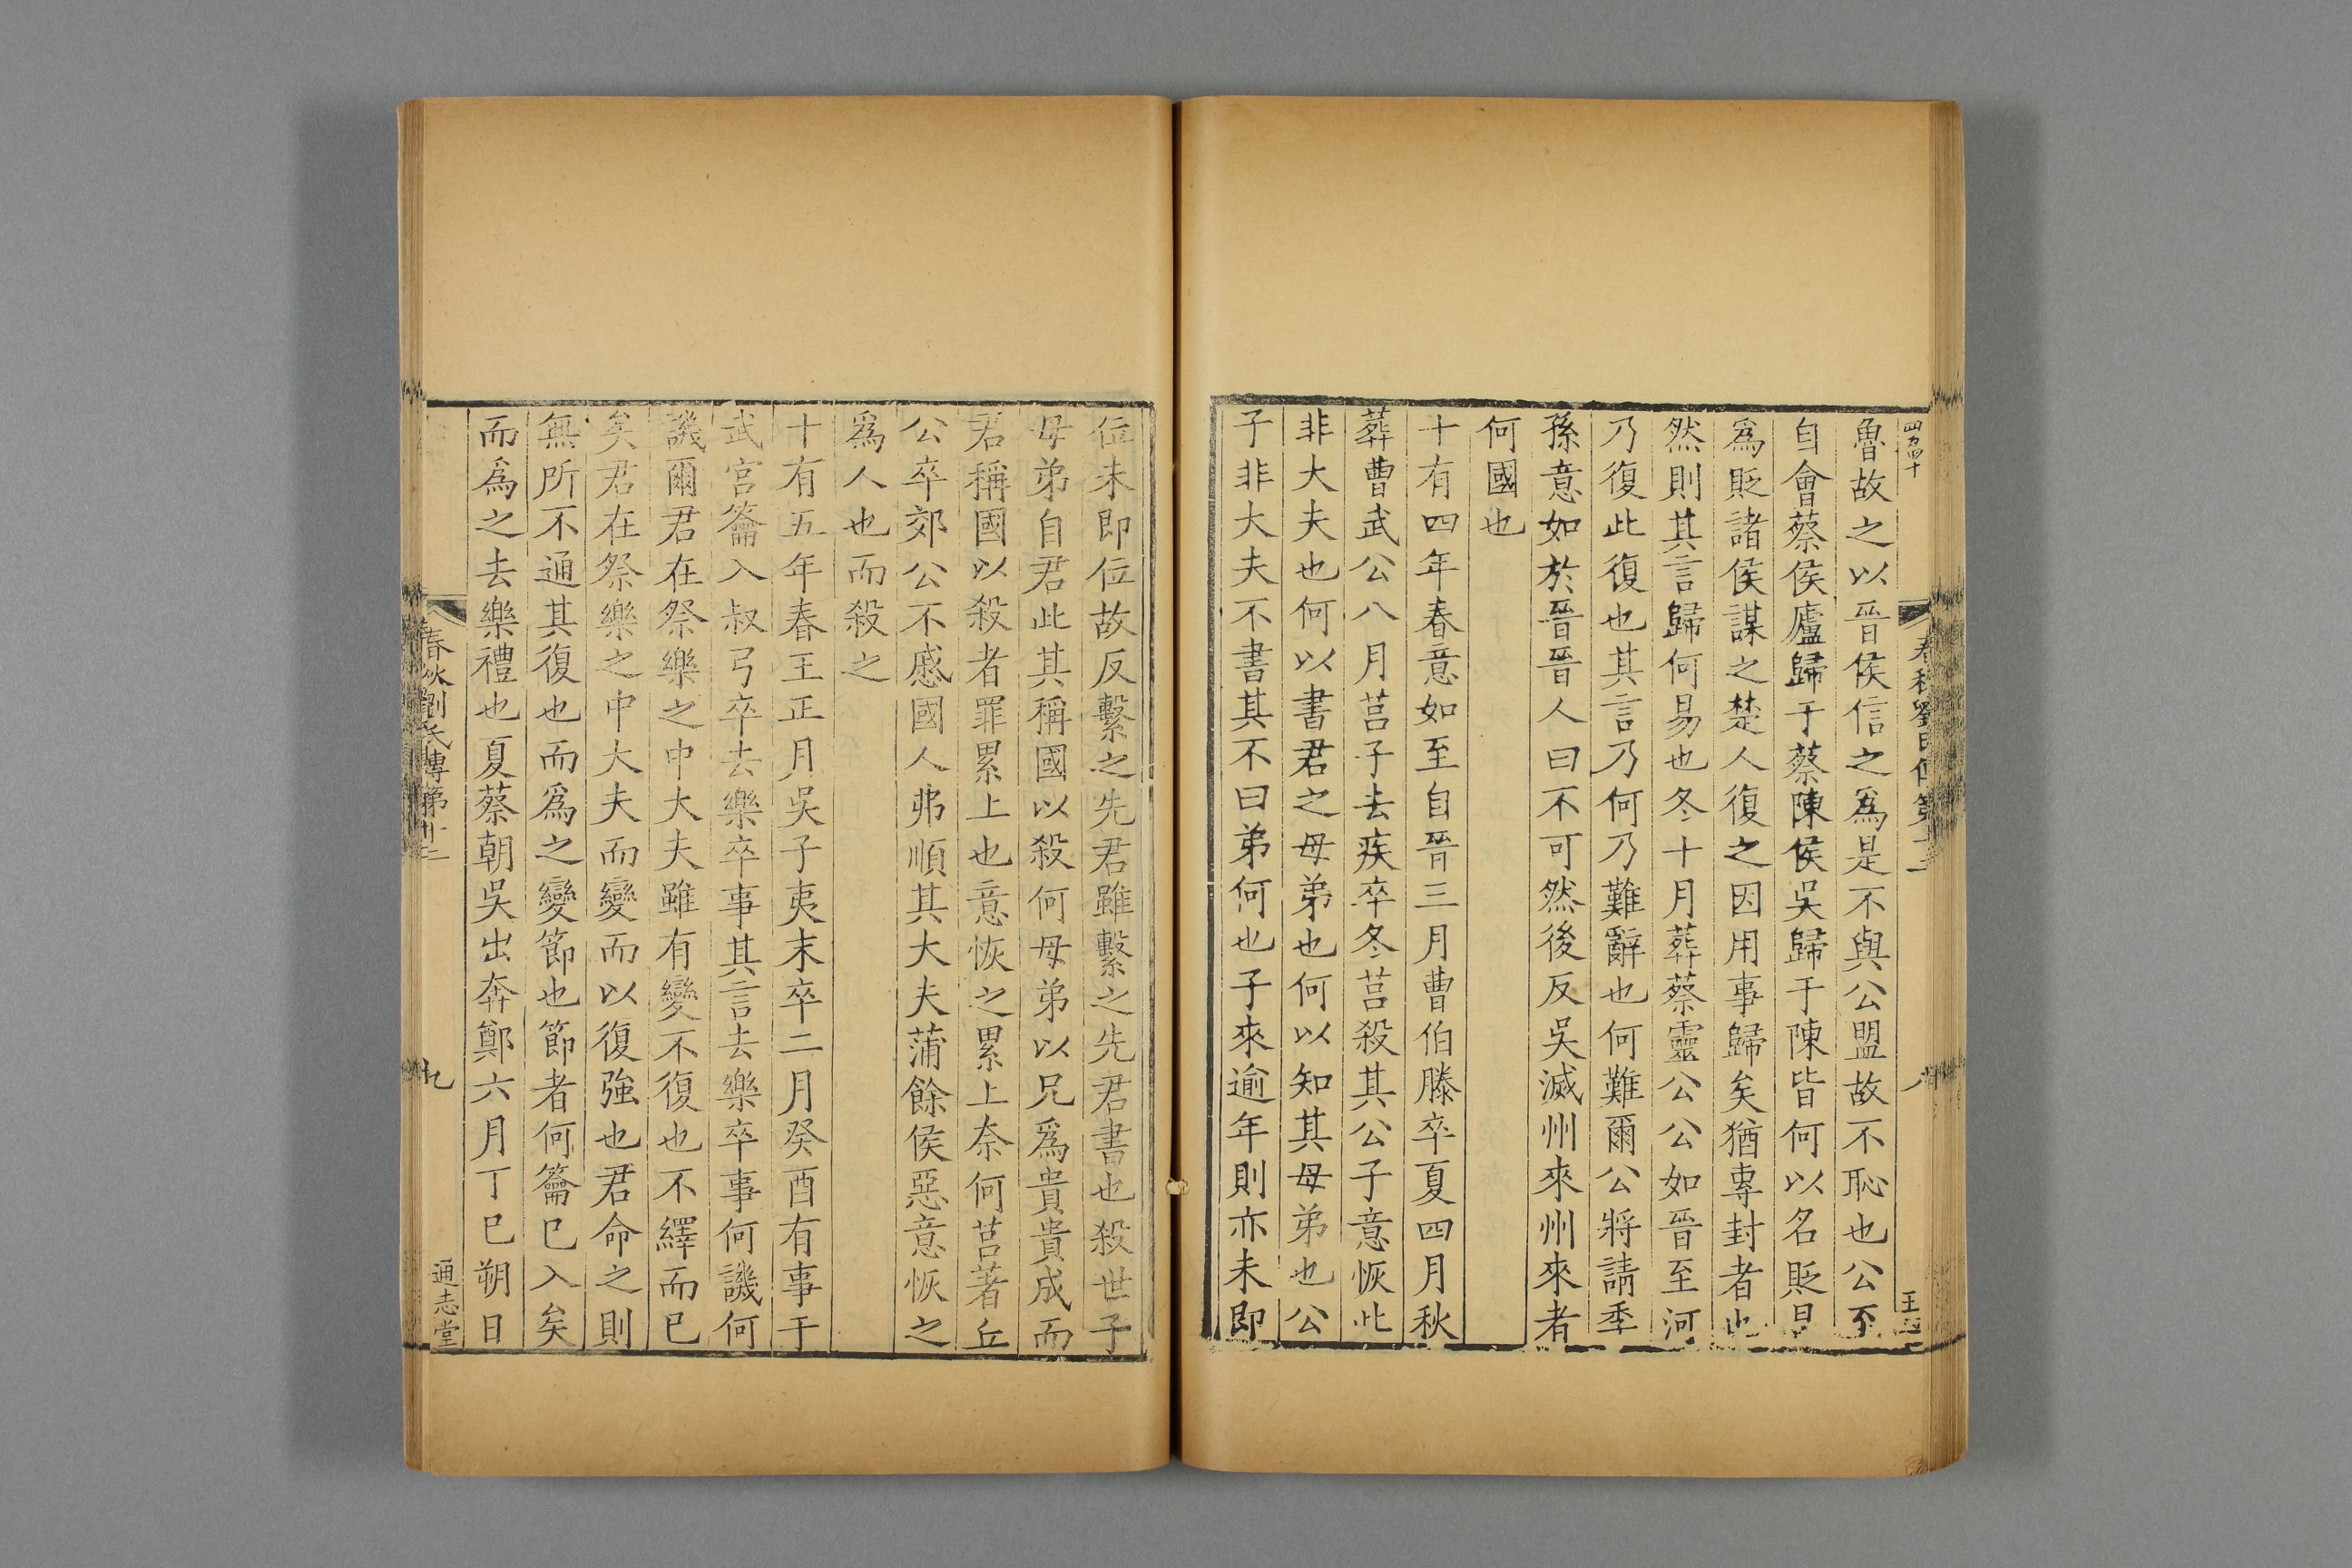 魯故之以晉侯信之爲是不與公盟故不恥也公至
自會蔡侯廬歸于蔡陳侯吳歸于陳皆何以名貶曷
爲貶諸侯謀之楚人復之因用事歸矣猶專封者也
然則其言歸何易也冬十月葬蔡靈公公如晉至河
乃復此復也其言乃何乃難辭也何難爾公將請季
孫意如於晉晉人曰不可然後反吳滅州來州來者
何國也
十有四年春意如至自晉三月曹伯滕卒夏四月秋
葬曹武公八月莒子去疾卒冬莒殺其公子意恢此
非大夫也何以書君之母弟也何以知其母弟也公
子非大夫不書其不曰弟何也子來逾年則亦未即
位未即位故反繫之先君雖繫之先君書也殺世子
母弟自君此其稱國以殺何母弟以兄爲貴貴成而
君稱國以殺者罪累上也意恢之累上奈何莒著丘
公卒郊公不慼國人弗順其大夫蒲餘侯惡意恢之
爲人也而殺之
十有五年春王正月吳子夷末卒二月癸酉有事于
武宮籥入叔弓卒去樂卒事其言去樂卒事何譏何
譏爾君在祭樂之中大夫雖有變不復也不繹而已
矣君在祭樂之中大夫而變而以復強也君命之則
無所不通其復也而爲之變節也節者何籥已入矣
而爲之去樂禮也夏蔡朝吳出奔鄭六月丁巳朔日
春秋劉氏傳第十二
九
通志堂